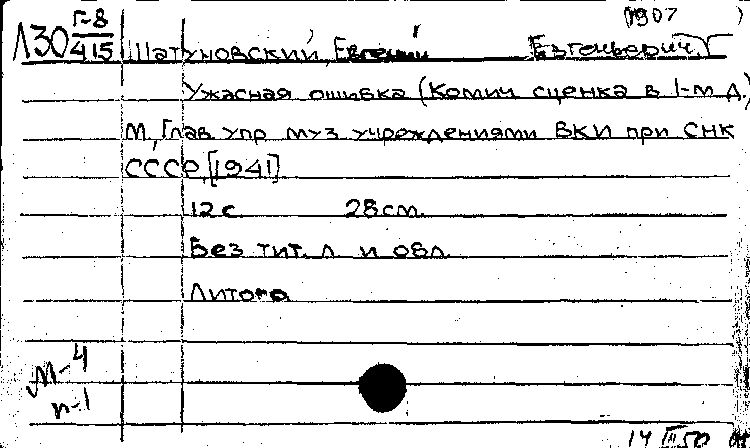 Г-8 1907
Л30 415 Шатуновский, Евгений Евгеньевич
Ужасная ошибка (Комич сценка в 1-м д.)
М, Глав упр муз учреждениями ВКИ при СНК
СССР, [1941].
12 с. 28 см.
Без тит. л. и обл.
Литогр
М-4
п-1
14 III 50